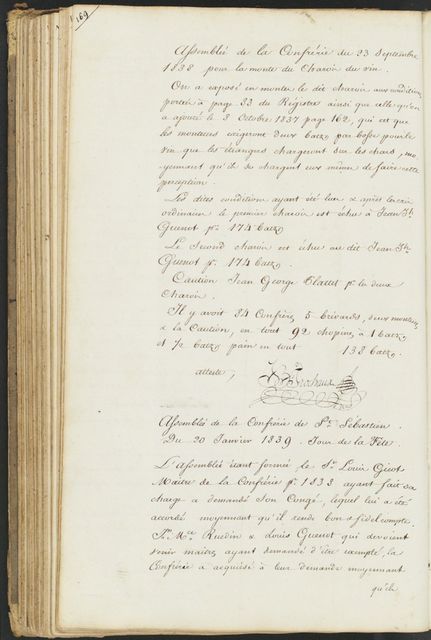 169
Assemblée de la Confrérie du 23 Septembre
1838 pour la monte du Charoi du vin.
On a exposé en monte le dit charoi aux conditions
portées à page 33 du Régistre ainsi que celle qu'on
a ajouté le 8 Octobre 1837 page 162, qui est que
les monteurs exigeront deux batz par bosse pour le
vin que les étrangers chargeront sur les chars, mo-
yennant qu'ils se chargent eux même de faire cette
perception.
Les dites conditions ayant été lues & après les cris
ordinaires le premier charoi est échu à Jean Js.
Guenot pr. 174 batz.
Le Second charoi est échu au dit Jean Js.
Guenot pr. 174 batz.
Caution Jean George Clottet pr. les deux
Charois.
Il y avoit 84 Confrères, 5 brévards, deux monteurs
& la Caution, en tout 92 chopines à 1 batz,
et ½ batz pain en tout 138 batz.
atteste,
Assemblée de la Confrérie de St. Sébastien.
Du 20 Janvier 1839. Jour de la Fête.
L'Assemblée étant formée, le Sr. Louis Gicot
Maitre de la Confrérie pr. 1838 ayant fait sa
charge a demandé son Congé, lequel lui a été
accordé moyennant qu'il rende bon & fidel compte.
Ruedin & Louis Guenot qui devoient
venir maitres ayant demandé d'être exempté, la
Confrérie a acquiesé à leur demande moyennant
qu'ils